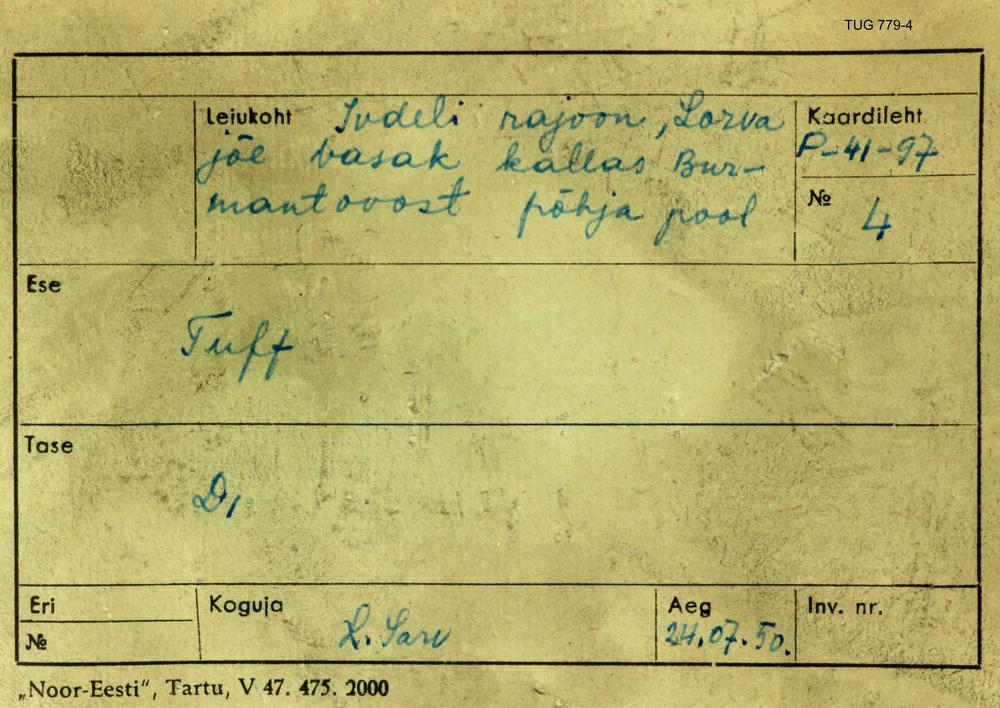 TUG 779-4
Leiukoht Ivdeli rajoon, Lozva
jõe vasak kallas Bur-
mantovost põhja pool
Kaardileht
P-41-97
№ 4
Ese
Tuff
Tase
D₁
Eri
№
Koguja
L. Sarv
Aeg
24.07.50.
Inv. nr.
„Noor-Eesti“, Tartu, V 47. 475. 2000